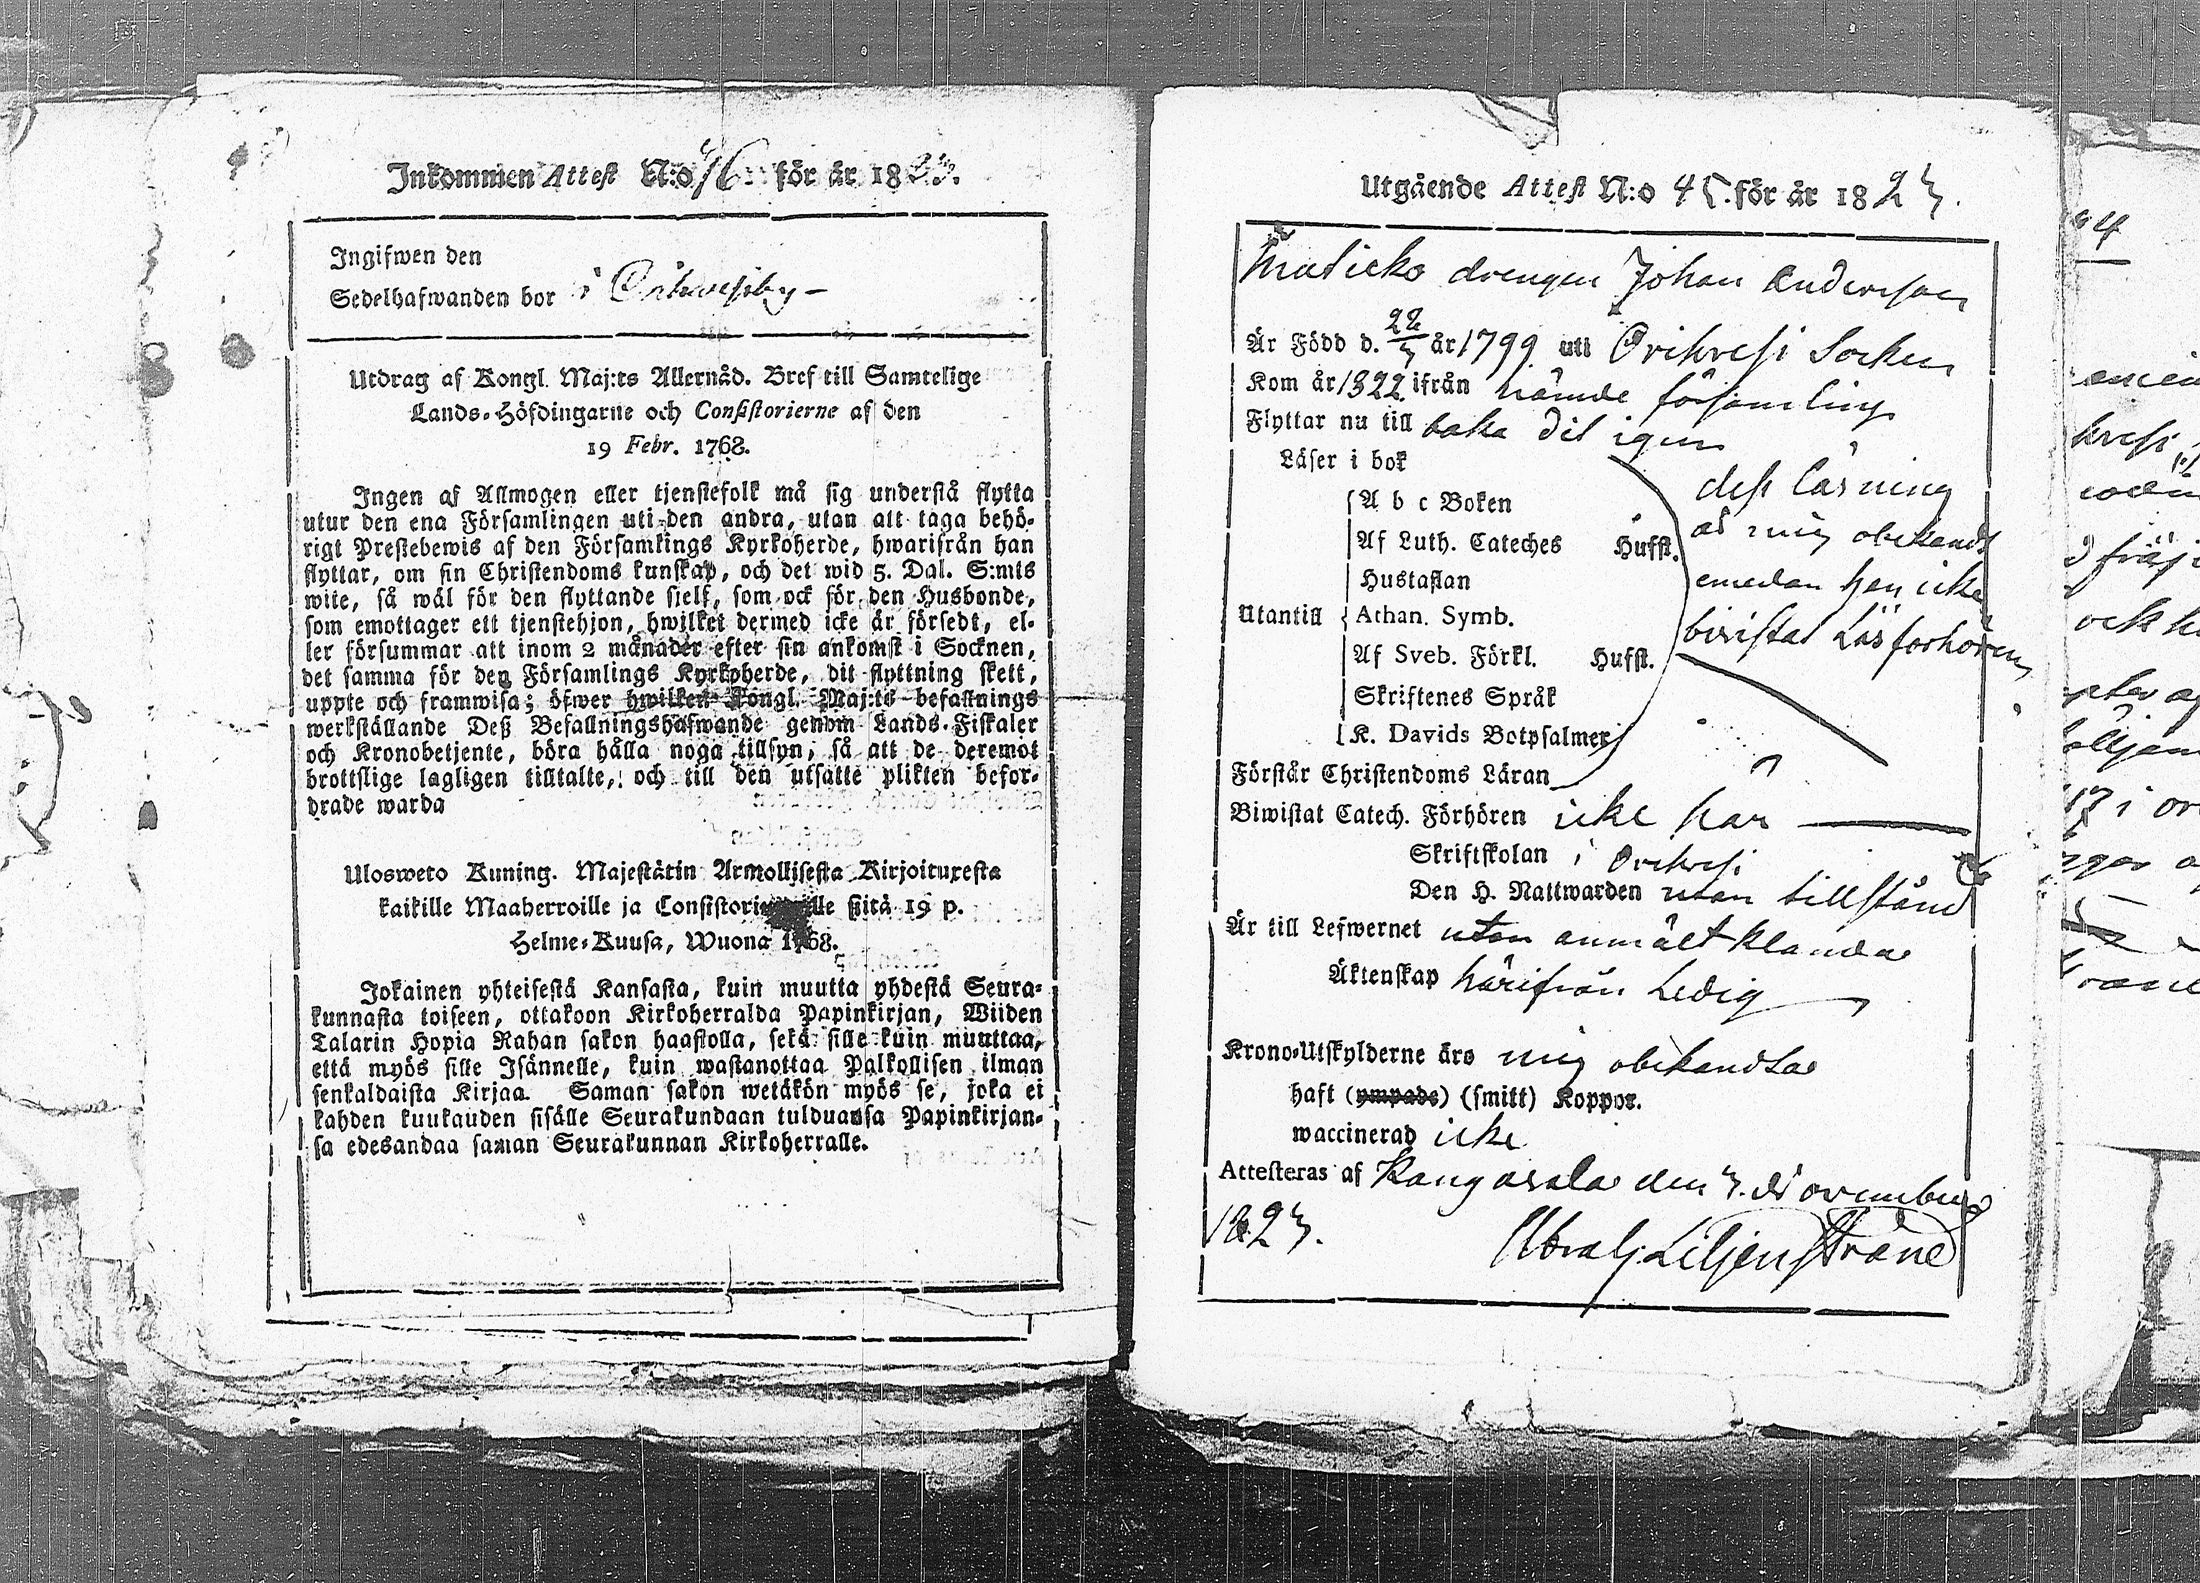 Inkommen Attest N:o 76 för år 1823.
Ingifwen den
Sedelhafwanden bor i Orihvesiby –
Utdrag af Kongl. Maj:ts Allernåd. Bref till Samtelige
Lands-Höfdingarne och Consistorierne af den
19 Febr. 1768.
Ingen af Allmogen eller tjenstefolk må sig understå flytta
utur den ena Församlingen uti den andra, utan att taga behö-
rigt Prestebewis af den Församlings Kyrkoherde, hwarifrån han
flyttar, om sin Christendoms kunskap, och det wid 5. Dal. S:mts
wite, så wäl för den flyttande sielf, som ock för den Husbonde,
som emottager ett tjenstehjon, hwilket dermed icke är försedt, el-
ler försummar att inom 2 månader efter sin ankomst i Socknen,
det samma för den Församlings Kyrkoherde, dit flyttning skett,
uppte och framwisa; öfwer hwilken Kongl. Maj:ts befallnings
werkställande Deß Befallningshafwande genom Lands-Fiskaler
och Kronobetjente, böra hålla noga tillsyn, så att de deremot
brottslige lagligen tilltalte, och till den utsatte plikten befor-
drade warda
Ulosweto Kuning. Majestätin Armollisesta Kirjoituxesta
kaikille Maaherroille ja Consistoriumeille siitä 19 p.
Helme-Kuusa, Wuona 1768.
Jokainen yhteisestä Kansasta, kuin muutta yhdestä Seura-
kunnasta toiseen, ottakoon Kirkoherralda Papinkirjan, Wiiden
Talarin Hopia Rahan sakon haastolla, sekä sille kuin muuttaa,
että myös sille Isännelle, kuin wastanottaa Palkollisen ilman
senkaldaista Kirjaa. Saman sakon wetäkön myös se, joka ei
kahden kuukauden sisälle Seurakundaan tulduansa Papinkirjan-
sa edesandaa saman Seurakunnan Kirkoherralle.
Utgående Attest N:o 45. för år 1823.
drengen Johan Andersson
Är Född d. 22/3 år 1799 uti Orihvesi Socken
Kom år 1822 ifrån nämde församling
Flyttar nu till baka dit igen
Läser i bok
A b c Boken
Af Luth. Cateches Hufst.
Hustaflan
Utantill Athan. Symb.
Af Sveb. Förkl. Hufst.
Skriftenes Språk
K. Davids Botpsalmer
dess läsning
är mig obekandt
emedan han icke
bivistat Läsförhören
Förstår Christendoms Läran
Biwistat Catech. Förhören icke här
Skriftskolan i Orihvesi
Den H. Nattwarden utan tillstånd
Är till Lefwernet utan anmält klander
Äktenskap härifrån Ledig
Krono-Utskylderne äro mig obekandta
haft (ympade) (smitt) Koppor.
waccinerad icke
Attesteras af Kangasala den 3. November
1823.
Abrah. Liljenstrand